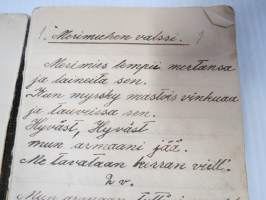 1. Merimiehen valssi. 1
Merimies lempii mertansa
ja laineita sen.
Kun myrsky mastois vinkuaa
ja touveissa sen.
Hyväst, Hyväst
mun armaani jää.
Me tavataan kerran viel!
2 v.
Mun armaan